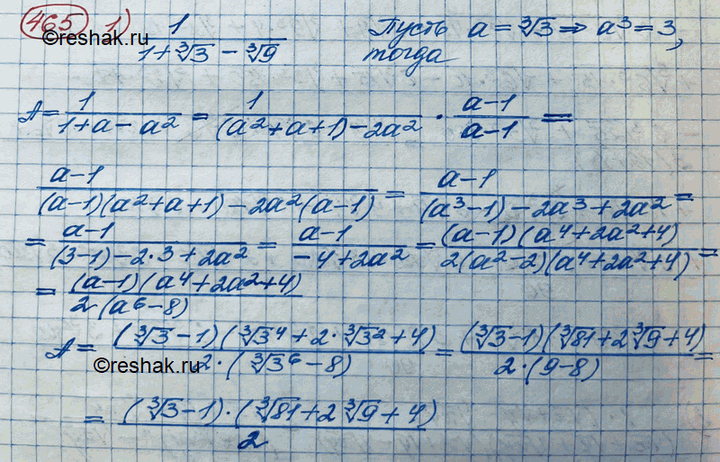 465 1) 1/(1+∛3−∛9) Пусть a=∛3 ⇒ a³=3,
©reshak.ru тогда
A= 1/(1+a−a²) = 1/((a²+a+1)−2a²) · (a−1)/(a−1) =
(a−1)/((a−1)(a²+a+1)−2a²(a−1)) = (a−1)/((a³−1)−2a³+2a²) =
= (a−1)/((3−1)−2·3+2a²) = (a−1)/(−4+2a²) = ((a−1)(a⁴+2a²+4))/(2(a²−2)(a⁴+2a²+4)) =
= ((a−1)(a⁴+2a²+4))/(2(a⁶−8))
A= ((∛3−1)(∛3⁴+2·∛3²+4))/(2·(∛3⁶−8)) = ((∛3−1)(∛81+2∛9+4))/(2·(9−8)) =
©reshak.ru
= ((∛3−1)·(∛81+2∛9+4))/2
©reshak.ru